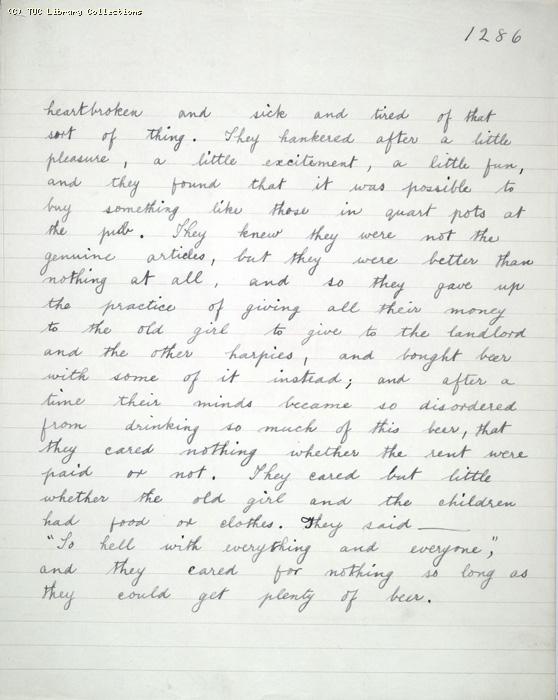 (C) TUC Library Collections
1286
heartbroken and sick and tired of that
sort of thing. They hankered after a little
pleasure, a little excitement, a little fun,
and they found that it was possible to
buy something like those in quart pots at
the pub. They knew they were not the
genuine articles, but they were better than
nothing at all, and so they gave up
the practice of giving all their money
to the old girl to give to the landlord
and the other harpies, and bought beer
with some of it instead; and after a
time their minds became so disordered
from drinking so much of this beer, that
they cared nothing whether the rent were
paid or not. They cared but little
whether the old girl and the children
had food or clothes. They said —
"To hell with everything and everyone",
and they cared for nothing so long as
they could get plenty of beer.